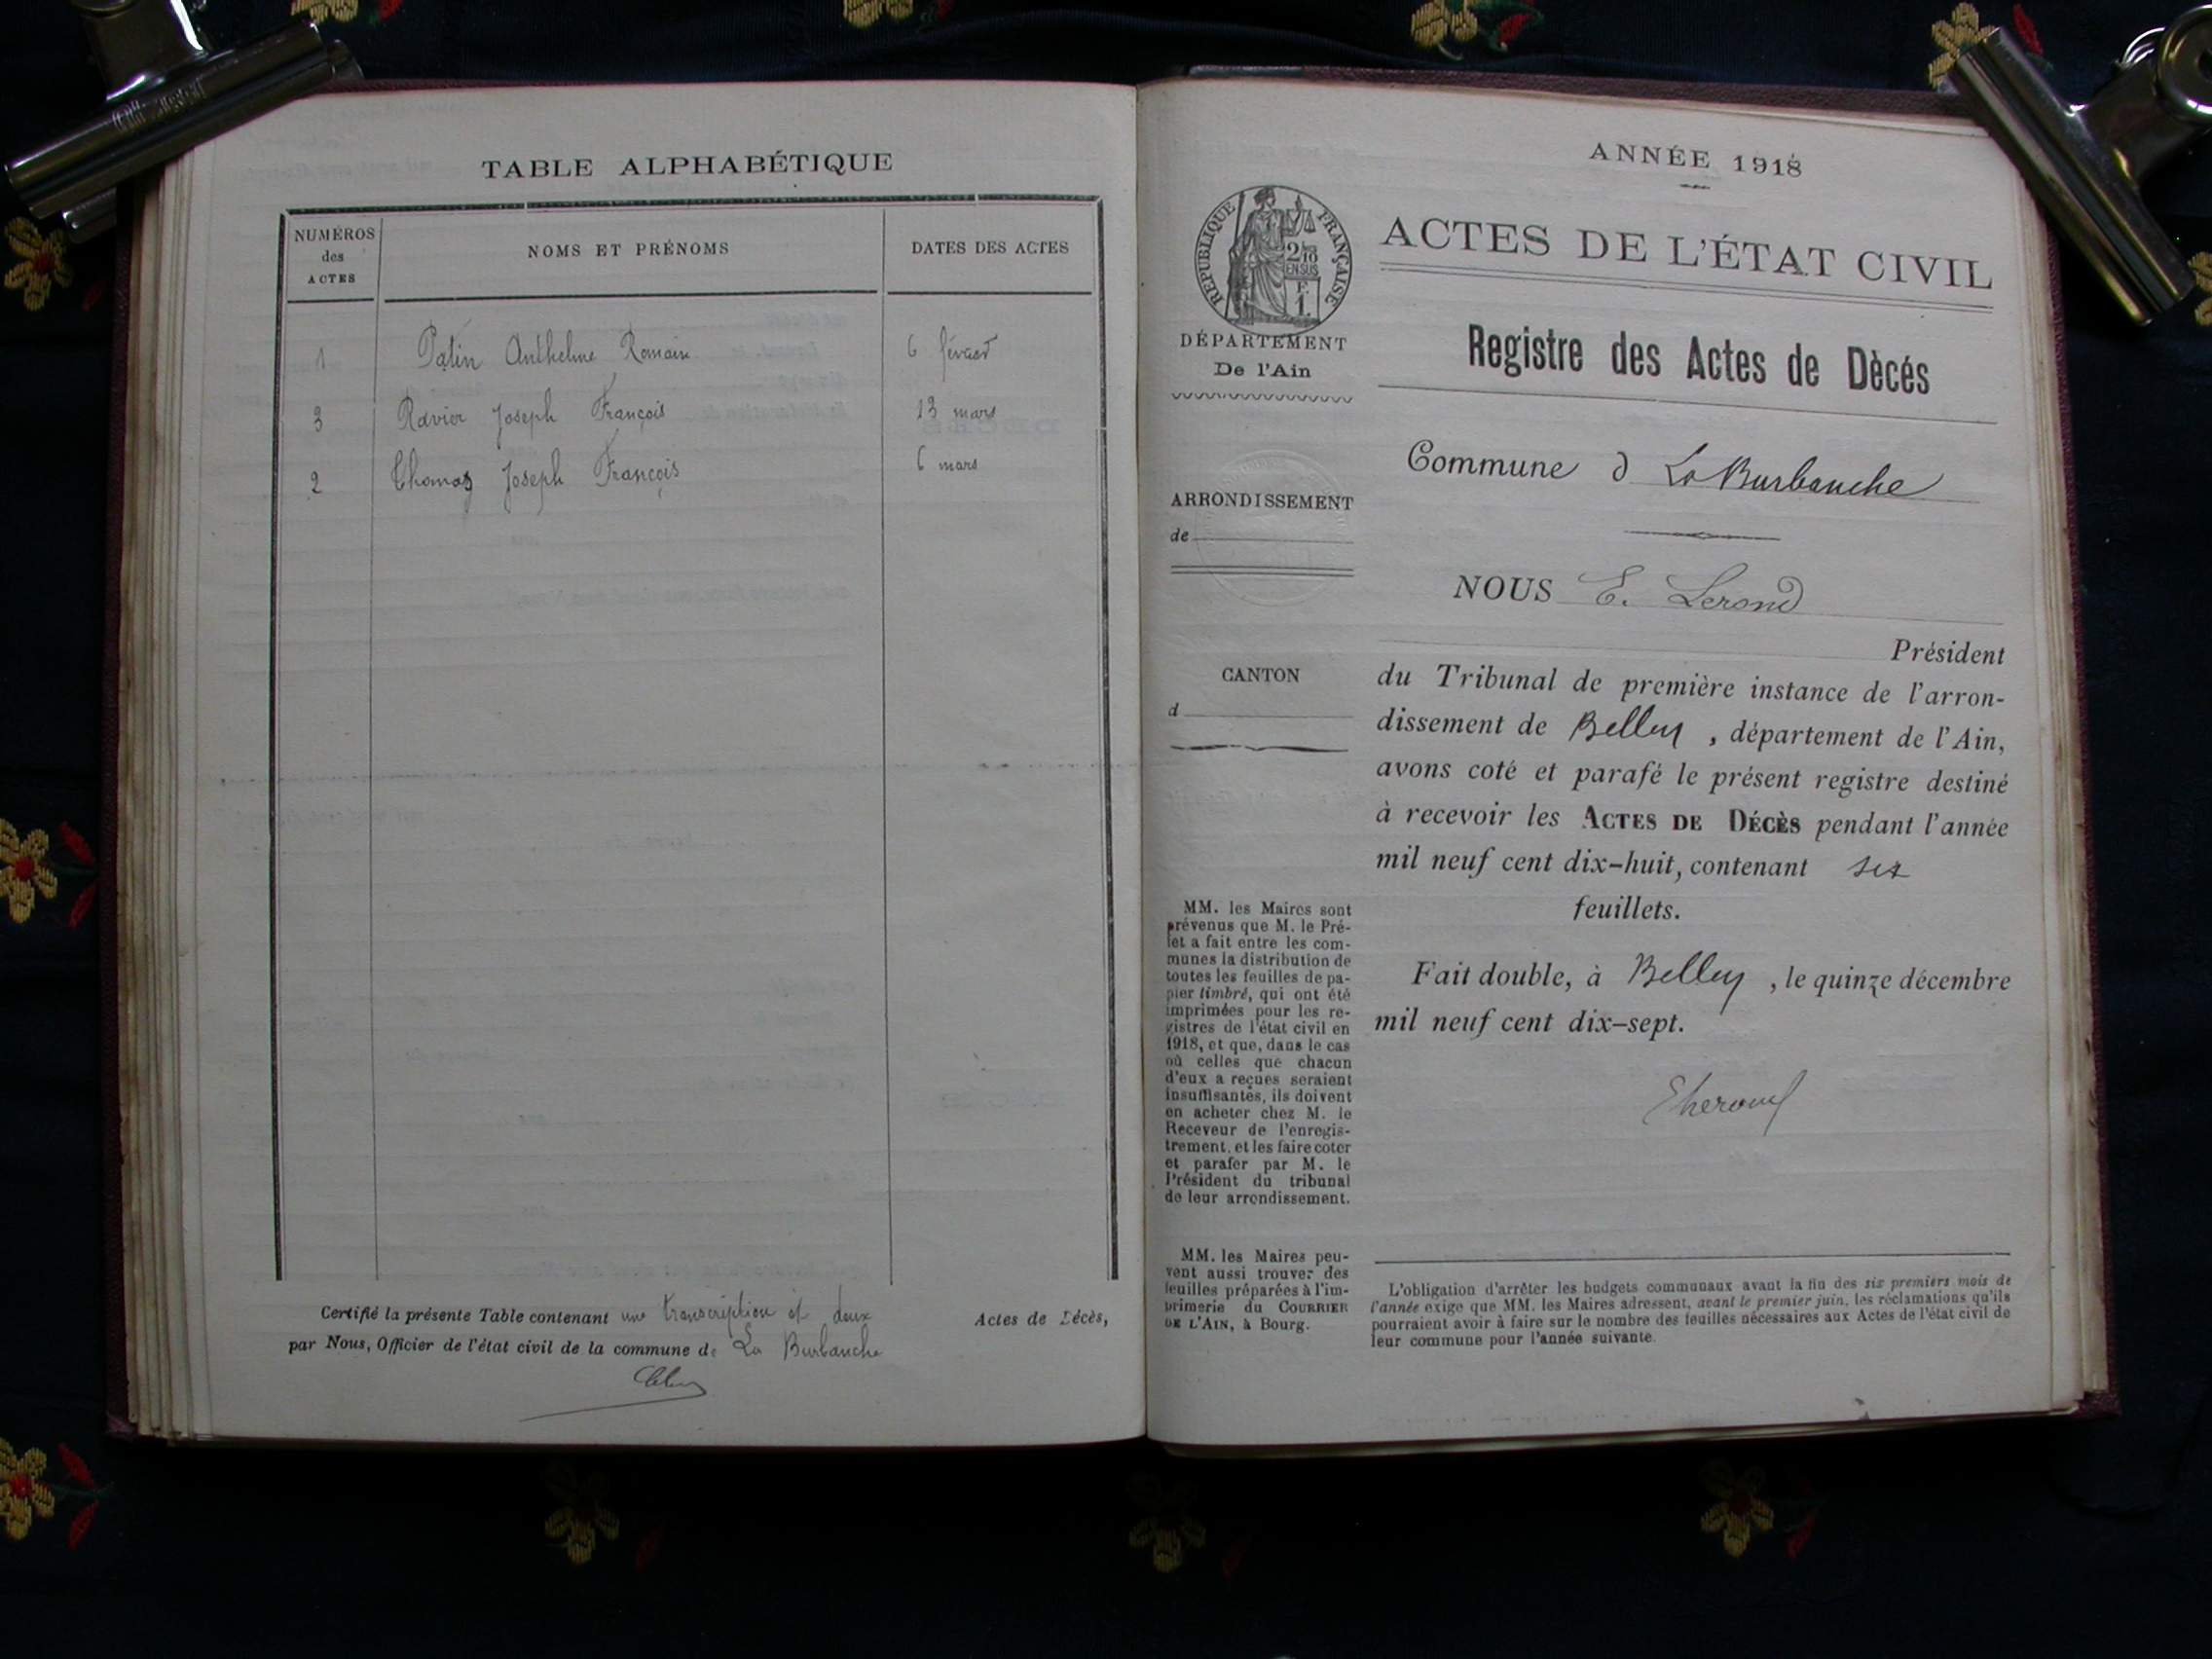 TABLE ALPHABÉTIQUE
NUMÉROS
des
ACTES
NOMS ET PRÉNOMS
DATES DES ACTES
1 Patin Anthelme Romain 6 février
3 Ravier Joseph François 13 mars
2 Thomas Joseph François 6 mars
Certifié la présente Table contenant une transcription et deux Actes de Décès,
par Nous, Officier de l'état civil de la commune de La Burbanche
ANNÉE 1918
ACTES DE L'ÉTAT CIVIL
Registre des Actes de Dècés
RÉPUBLIQUE FRANÇAISE
2/10
EN SUS
F.
1.
DÉPARTEMENT
De l'Ain
ARRONDISSEMENT
de
CANTON
d
MM. les Maires sont
prévenus que M. le Pré-
fet a fait entre les com-
munes la distribution de
toutes les feuilles de pa-
pier timbré, qui ont été
imprimées pour les re-
gistres de l'état civil en
1918, et que, dans le cas
où celles que chacun
d'eux a reçues seraient
insuffisantes, ils doivent
en acheter chez M. le
Receveur de l'enregis-
trement, et les faire coter
et parafer par M. le
Président du tribunal
de leur arrondissement.
MM. les Maires peu-
vent aussi trouver des
feuilles préparées à l'im-
primerie du COURRIER
DE L'AIN, à Bourg.
Commune d La Burbanche
NOUS E. Lerond
Président
du Tribunal de première instance de l'arron-
dissement de Belley, département de l'Ain,
avons coté et parafé le présent registre destiné
à recevoir les ACTES DE DÉCÈS pendant l'année
mil neuf cent dix-huit, contenant six
feuillets.
Fait double, à Belley, le quinze décembre
mil neuf cent dix-sept.
L'obligation d'arrêter les budgets communaux avant la fin des six premiers mois de
l'année exige que MM. les Maires adressent, avant le premier juin, les réclamations qu'ils
pourraient avoir à faire sur le nombre des feuilles nécessaires aux Actes de l'état civil de
leur commune pour l'année suivante.